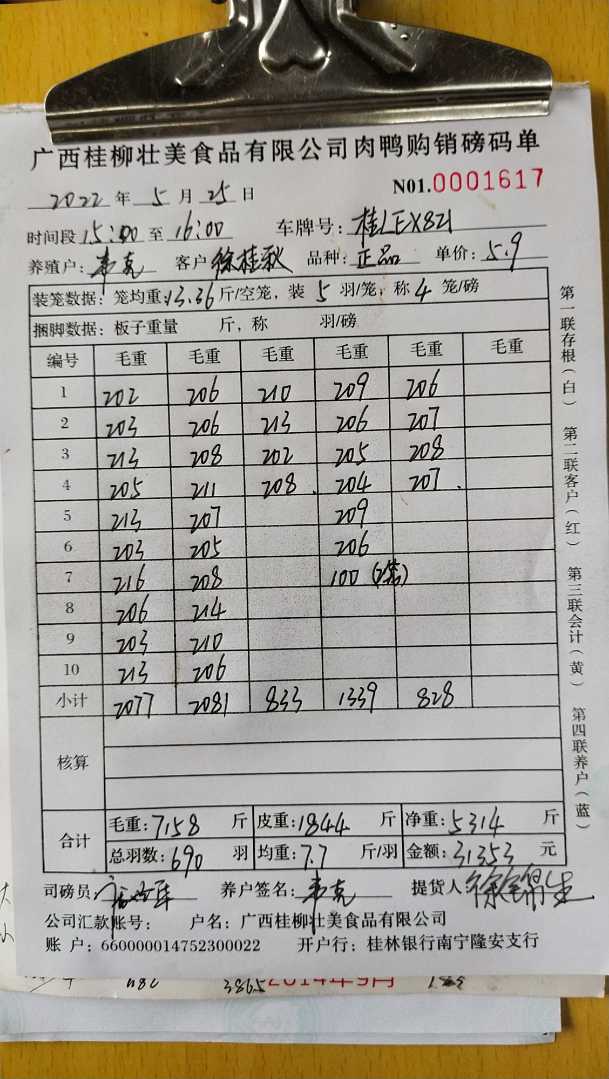 广西桂柳壮美食品有限公司肉鸭购销磅码单
2022 年 5 月 25 日 N01.0001617
时间段 15:00 至 16:00 车牌号: 桂LEX821
养殖户: 韦克 客户 徐桂秋 品种: 正品 单价: 5.9
装笼数据: 笼均重: 13.36 斤/空笼, 装 5 羽/笼, 称 4 笼/磅
捆脚数据: 板子重量 斤, 称 羽/磅
编号 毛重 毛重 毛重 毛重 毛重 毛重
1 202 206 210 209 206
2 203 206 213 206 207
3 213 208 202 205 208
4 205 211 208 204 207
5 213 207 209
6 203 205 206
7 216 208 100 (2笼)
8 206 214
9 203 210
10 213 206
小计 2077 2081 833 1339 828
核算
合计
毛重: 7158 斤 皮重: 1844 斤 净重: 5314 斤
总羽数: 690 羽 均重: 7.7 斤/羽 金额: 31353 元
司磅员 养户签名: 韦克 提货人
公司汇款账号: 户名: 广西桂柳壮美食品有限公司
账 户: 660000014752300022 开户行: 桂林银行南宁隆安支行
第一联存根(白) 第二联客户(红) 第三联会计(黄) 第四联养户(蓝)
3865 2014年9月